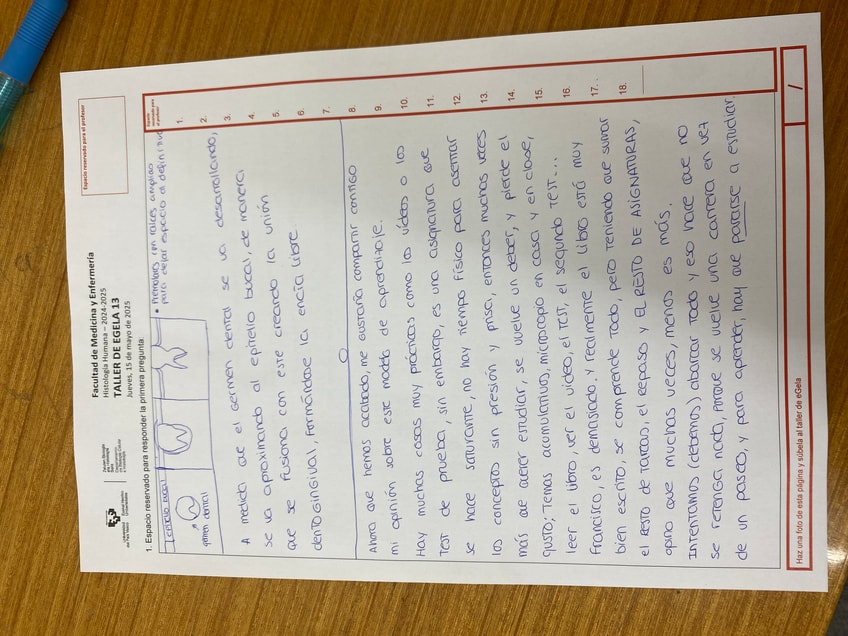 Facultad de Medicina y Enfermería
Histología Humana – 2024-2025
TALLER DE EGELA 13
Jueves, 15 de mayo de 2025
Espacio reservado para el profesor
1. Espacio reservado para responder la primera pregunta:
germen dental
• Premolares con raíces amplias
para dejar espacio al definitivo
A medida que el germen dental se va desarrollando,
se va aproximando al epitelio bucal, de manera
que se fusiona con este creando la unión
dentogingival, formándose la encía libre.
Ahora que hemos acabado, me gustaría compartir contigo
mi opinión sobre este modelo de aprendizaje.
Hay muchas cosas muy prácticas como los vídeos o los
test de prueba, sin embargo, es una asignatura que
se hace saturante, no hay tiempo físico para asentar
los conceptos sin presión y prisa, entonces muchas veces
más que querer estudiar, se vuelve un deber, y pierde el
gusto; Temas acumulativos, microscopio en casa y en clase,
leer el libro, ver el vídeo, el TEST, el segundo TEST...
Francisco, es demasiado. y realmente el libro está muy
bien escrito, se comprende todo, pero teniendo que sumar
el resto de tareas, el repaso y EL RESTO DE ASIGNATURAS,
opino que muchas veces, menos es más.
Intentamos (debemos) abarcar todo y eso hace que no
se retenga nada, porque se vuelve una carrera en vez
de un paseo, y para aprender, hay que pararse a estudiar.
Espacio
reservado para
el profesor
1.
2.
3.
4.
5.
6.
7.
8.
9.
10.
11.
12.
13.
14.
15.
16.
17.
18.
/
Haz una foto de esta página y súbela al taller de eGela